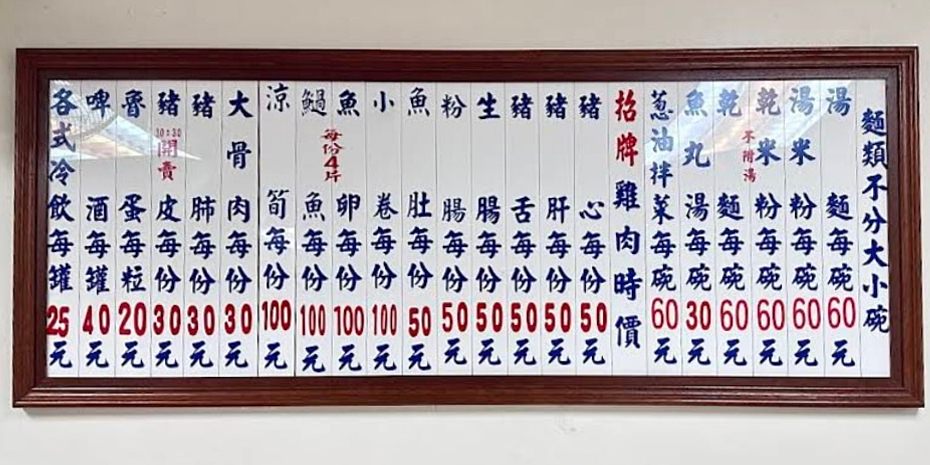 麵類不分大小碗
湯麵每碗60元
湯米粉每碗60元
乾米粉每碗60元
不附湯
乾麵每碗60元
魚丸湯每碗30元
蔥油拌菜每碗60元
招牌雞肉時價
豬心每份50元
豬肝每份50元
豬舌每份50元
生腸每份50元
粉腸每份50元
魚肚每份50元
小卷每份100元
魚卵每份100元
每份4片
鯃魚每份100元
涼筍每份100元
大骨肉每份30元
豬肺每份30元
豬皮每份30元
10:30開賣
魯蛋每粒20元
啤酒每罐40元
各式冷飲每罐25元